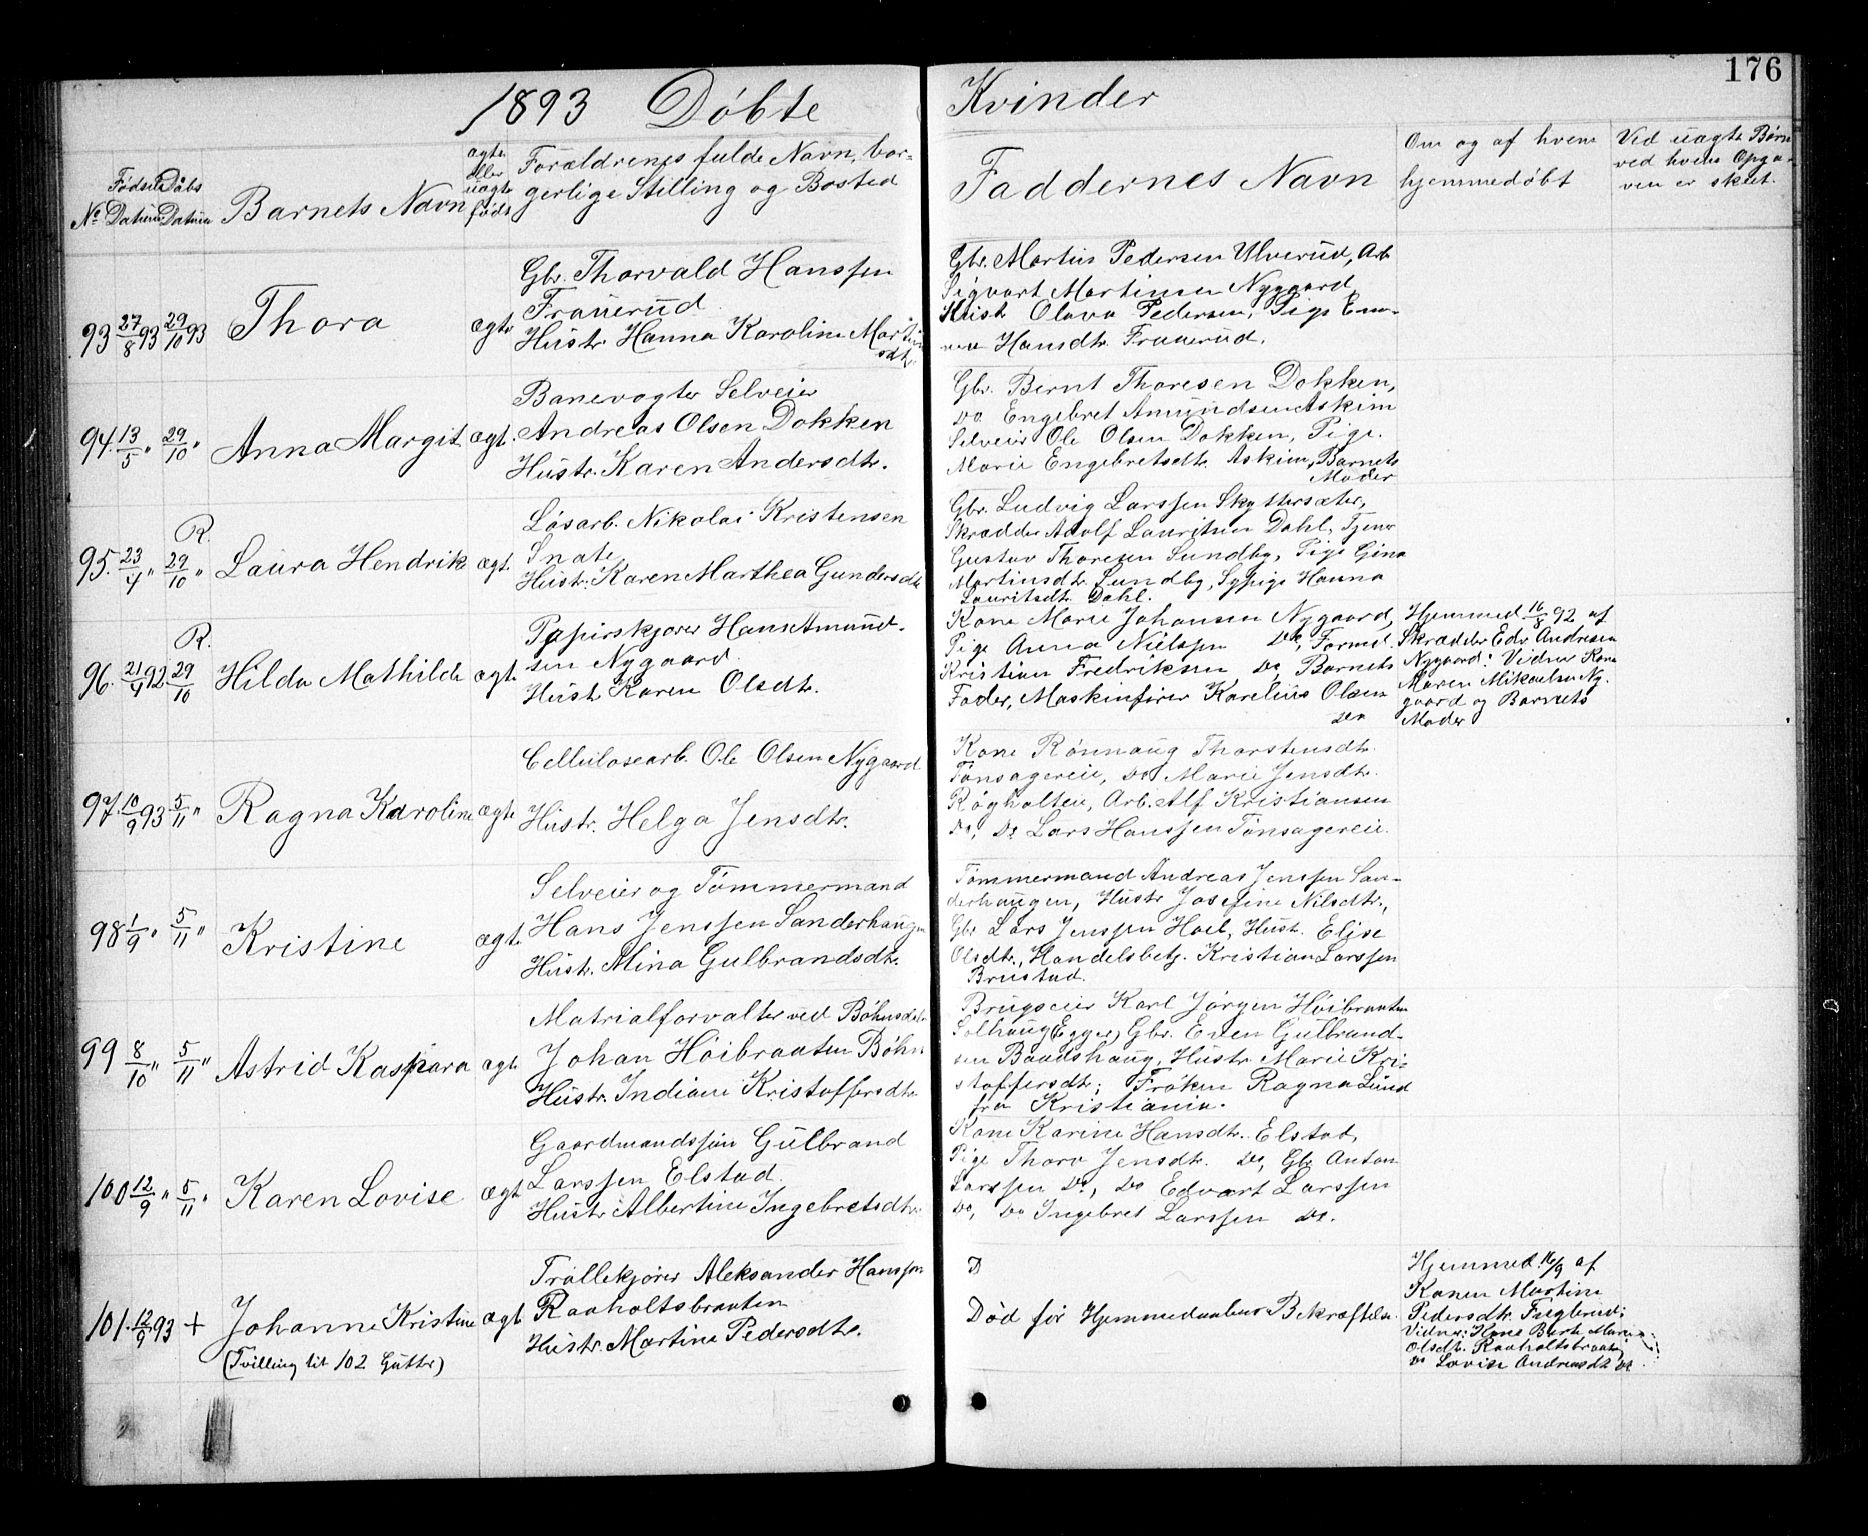 176
1893 Döbte Kvinder
No
Fødsels Datum
Daabs Datum
Barnets Navn
ægte eller uægte föds
Forældrenes fulde Navn, bor-
gerlige Stilling og Bosted
Faddernes Navn
Om og af hvem
hjemmedöbt
Vid uægte Børn
ved hvem Opga-
ven er skeet.
93 27/8 93 29/10 93 Thora ægte
Gbr. Thorvald Hanssen
Frauerud
Hustr. Hanna Karoline Martin
sdtr.
Gbr. Martin Pedersen Ulverud, Arb
Sigvart Martinsen Nygaard,
Olava Pedersen, Pige Em-
Hansdtr. Frauerud.
94. 13/5 " 29/10 " Anna Margit ægt.
Banevogter Selveier
Andreas Olsen Dokken
Hustr. Karen Andersdtr.
Gbr. Bernt Thoresen Dokken,
Do. Engebret Amundsen Askim
Selveier Ole Olsen Dokken, Pige.
Marie Engebretsdtr. Askim, Barnets
Moder
R.
95. 23/4 " 29/10 " Laura Hendrik ægt.
Løsarb. Nikolai Kristensen
Snate
Hustr. Karen Marthea Gundersdtr
Gbr. Ludvig Larssen Skyttersæter,
Skrædder Adolf Lauritsen Dahl, Tjener
Gustav Thoresen Sundby, Pige Gina
Martinsdtr. Sundby, Sypige Hanna
Lauritsdtr. Dahl.
R.
96. 21/4 92 29/10 Hilda Mathilde ægt.
Papirskjører Hans Amund-
sen Nygaard.
Hust. Karen Olsdtr.
Kone Marie Johansen Nygaard,
Pige Anna Nielssen Do, Formd.
Kristian Fredriksen Do, Barnets
Fader, Maskenfører Karelius Olsen
Do
Hjemmed. 16/8 92 af
Skrædder Edv Andresen
Nygaard: Vidner Kone
Maren Mikaelsen Ny-
gaard og Barnets
Moder
97. 10/9 93 5/11 " Ragna Karoline ægte
Cellulosearb. Ole Olsen Nygaard
Hustr. Helga Jensdtr.
Kone Rönnaug Thorstensdtr.
Tönsagereie, Do Marie Jensdtr.
Røgholteie, Arb. Alf Kristiansen
Do, Do Lars Hanssen Tönsagereie.
98 1/9 " 5/11 " Kristine ægt.
Selveier og Tömmermand
Hans Jenssen Sanderhaugen
Hustr. Mina Gulbrandsdtr.
Tömmermand Andreas Jenssen San-
derhaugen, Hustr Josefine Nilsdtr.,
Gbr Lars Jenssen Hoel, Hust. Elise
Olsdtr., Handelsbetj. Kristian Larssen
Brustad.
99 8/10 " 5/11 " Astrid Kaspara ægt.
Matrialforvalter ved Böhnsdal
Johan Höibraaten Böhn
Hustr. Indiane Kristoffersdtr.
Brugseier Karl Jörgen Höibraaten
Solhaug (Egge), Gbr. Even Gulbrand-
sen Baadshaug, Hustr Marie Kri-
stoffersdtr; Fröken Ragna Lund
fra Kristiania.
100 12/9 " 5/11 " Karen Lovise ægt
Gaardmandssön Gulbrand
Larssen Elstad.
Hustr. Albertine Ingebretsdtr.
Kone Karine Hansdtr. Elstad,
Pige Thora Jensdtr. Do, Gbr Anton
Larssen Do, Do Edvart Larssen
Do, Do Ingebret Larssen Do.
101. 12/9 93 + Johanne Kristine ægt
(Tvilling til 102 Gutter)
Trallekjører Aleksander Hanssen
Raaholtsbraaten
Hustr. Martine Pedersdtr.
D
Död før Hjemmedaabens Bekræftelse.
Hjemmed. 16/9 af
Konen Martine
Pedersdtr Fuglerud;
Vidner: Kone Berte Marie
Olsdtr. Raaholtsbraaten,
Do Lovise Andreasdtr Do.